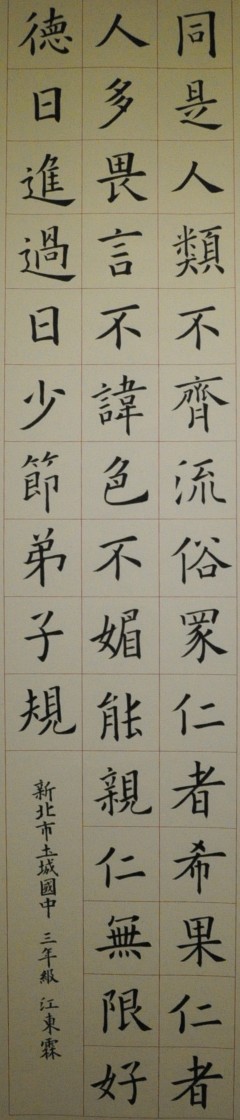 同是人類不齊流俗眾仁者希果仁者
人多畏言不諱色不媚能親仁無限好
德日進過日少節弟子規
新北市土城國中 三年級 江東霖